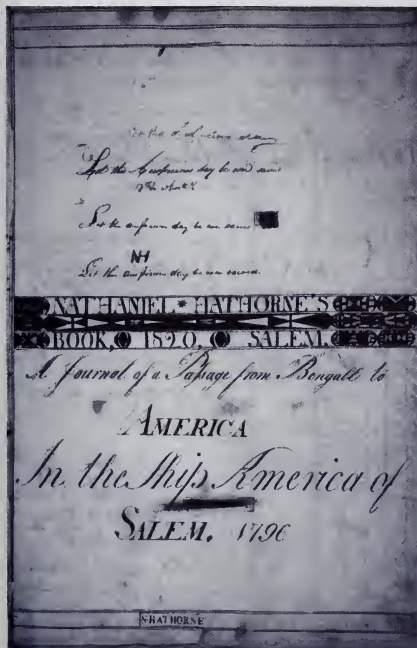 Let the Auspicious day be ever
Let the auspicious day be ever
NH
Let the auspicious day be ever sacred.
NATHANIEL * HATHORNE'S
BOOK, 1820. SALEM.
A Journal of a Passage from Bengall to
AMERICA
In the Ship America of
SALEM. 1796
N HATHORNE